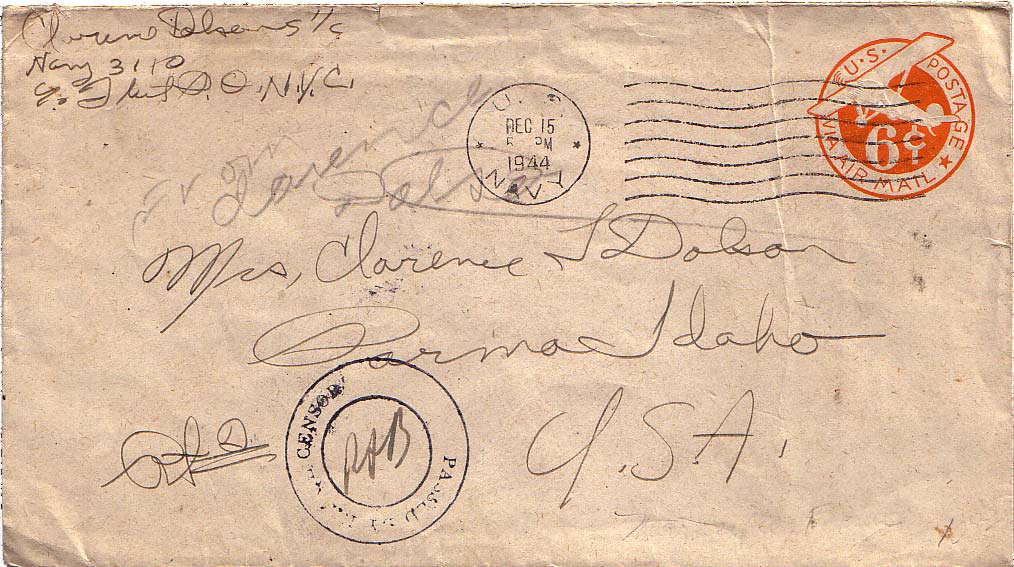 Clarence Dolson S 1/c
Navy 3110
℅ Fleet P.O. N.Y.C.
From
Clarence
Dolson
U. S.
DEC 15
PM
1944
NAVY
U.S. POSTAGE
6¢
VIA AIR MAIL
Mrs, Clarence L Dolson
Parma Idaho
U.S.A.
PASSED BY CENSOR
RAB